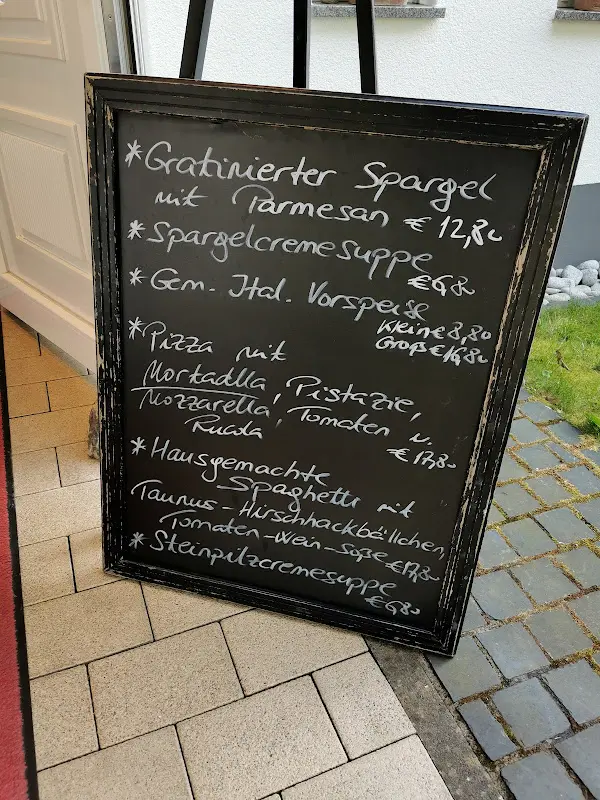 *Gratinierter Spargel
mit Parmesan € 12,80
*Spargelcremesuppe
€6,80
*Gem. Ital. Vorspeise
Kleine 8,80
Groß € 16,80
*Pizza mit
Mortadella, Pistazie,
Mozzarella, Tomaten u.
Rucola
€ 17,80
*Hausgemachte
Spaghetti mit
Taunus-Hirschhackbällchen,
Tomaten-Wein-Soße €17,80
*Steinpilzcremesuppe
€6,80